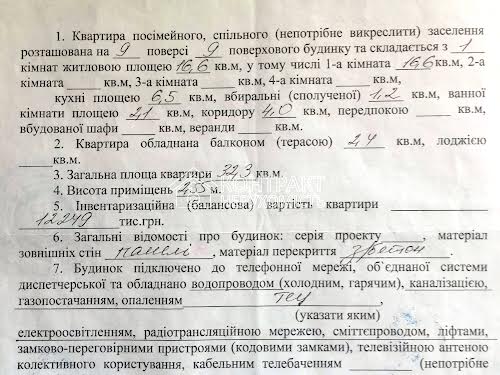 1. Квартира посімейного, спільного (непотрібне викреслити) заселення
розташована на 9 поверсі 9 поверхового будинку та складається з 1
кімнат житловою площею 16,6 кв.м, у тому числі 1-а кімната 16,6 кв.м, 2-а
кімната _____ кв.м, 3-а кімната _____ кв.м, 4-а кімната _____ кв.м,
кухні площею 6,5 кв.м, вбиральні (сполученої) 1,2 кв.м, ванної
кімнати площею 2,1 кв.м, коридору 4,0 кв.м, передпокою _____ кв.м,
вбудованої шафи _____ кв.м, веранди _____ кв.м.
2. Квартира обладнана балконом (терасою) 2,4 кв.м, лоджією
_____ кв.м.
3. Загальна площа квартири 32,3 кв.м.
4. Висота приміщень 2,55 м.
КОНТРАКТ
5. Інвентаризаційна (балансова) вартість квартири _____
12249 тис.грн.
6. Загальні відомості про будинок: серія проекту _____, матеріал
зовнішніх стін панелі, матеріал перекриття з/бетон.
7. Будинок підключено до телефонної мережі, об'єднаної системи
диспетчерської та обладнано водопроводом (холодним, гарячим), каналізацією,
газопостачанням, опаленням тец,
(указати яким)
електроосвітленням, радіотрансляційною мережею, сміттєпроводом, ліфтами,
замково-переговірними пристроями (кодовими замками), телевізійною антеною
колективного користування, кабельним телебаченням _____ (непотрібне